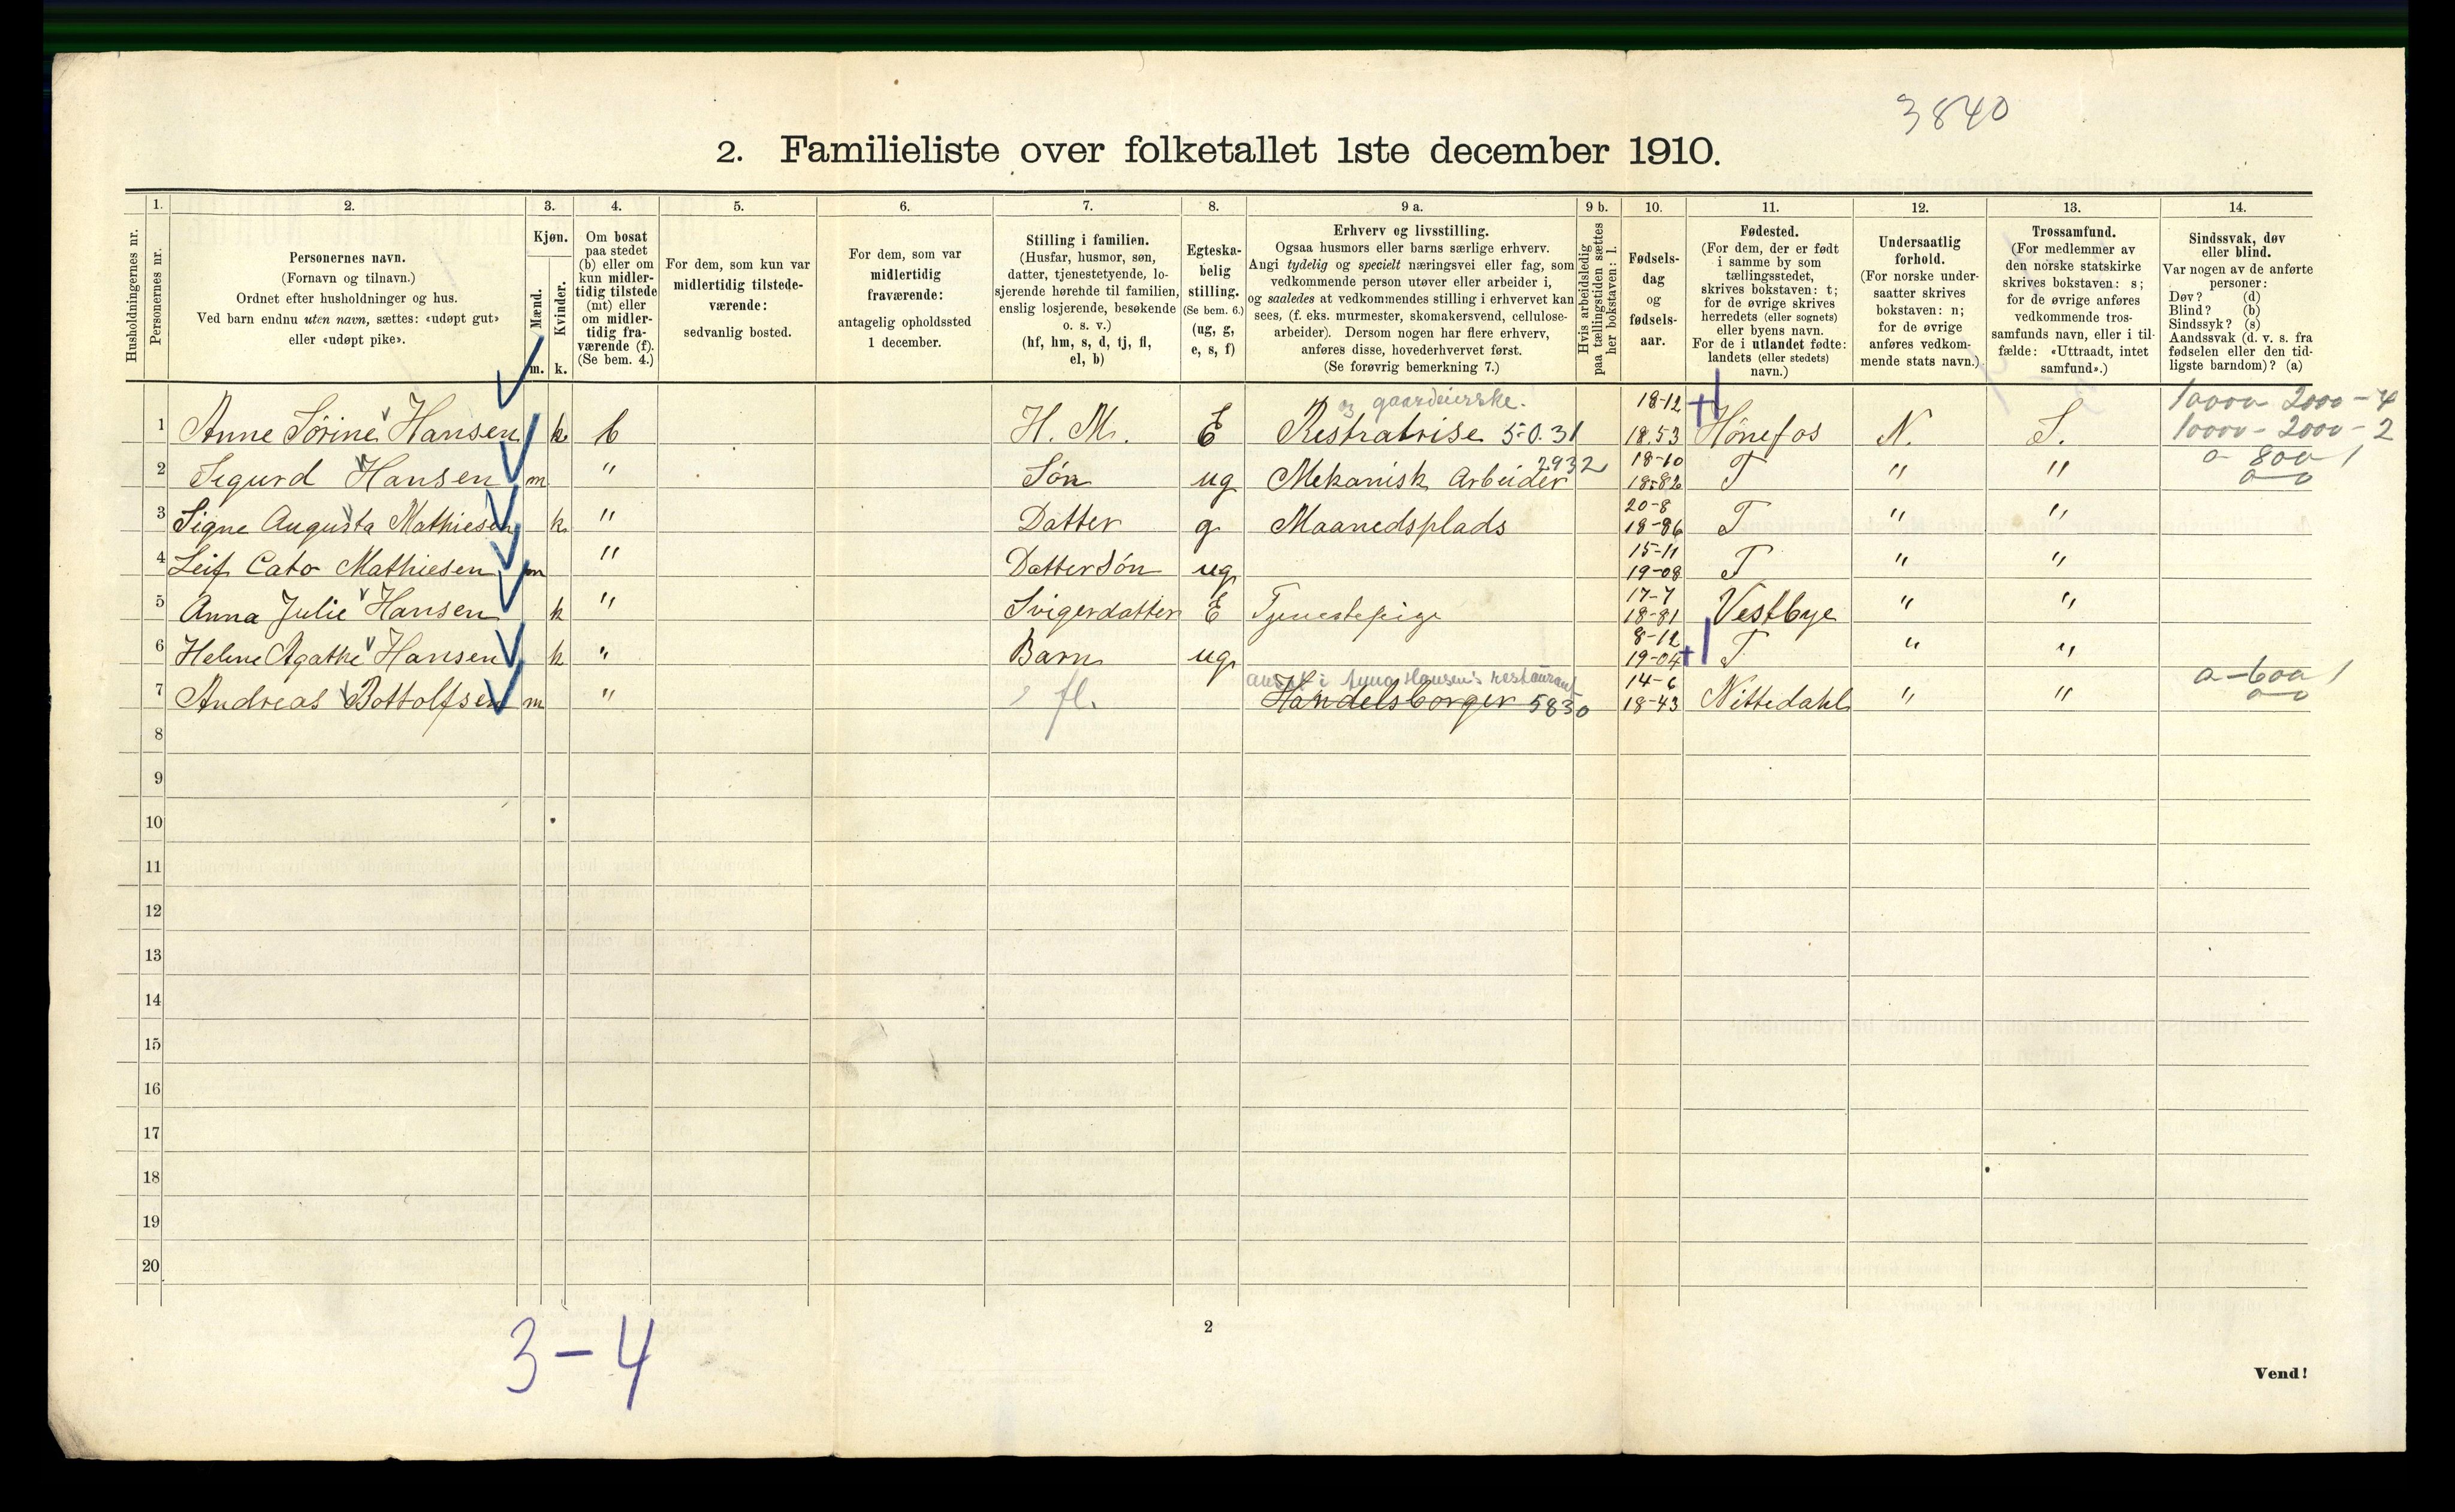 3840
2. Familieliste over folketallet 1ste december 1910.
Husholdningernes nr.
1. Personernes nr.
2.
Personernes navn.
(Fornavn og tilnavn.)
Ordnet efter husholdninger og hus.
Ved barn endnu uten navn, sættes: «udøpt gut»
eller «udøpt pike».
3.
Kjøn.
Mænd. m.
Kvinder. k.
4.
Om bosat
paa stedet
(b) eller om
kun midler-
tidig tilstede
(mt) eller
om midler-
tidig fra-
værende (f).
(Se bem. 4.)
5.
For dem, som kun var
midlertidig tilstede-
værende:
sedvanlig bosted.
6.
For dem, som var
midlertidig
fraværende:
antagelig opholdssted
1 december.
7.
Stilling i familien.
(Husfar, husmor, søn,
datter, tjenestetyende, lo-
sjerende hørende til familien,
enslig losjerende, besøkende
o. s. v.)
(hf, hm, s, d, tj, fl,
el, b)
8.
Egteska-
belig
stilling.
(Se bem. 6.)
(ug, g,
e, s, f)
9 a.
Erhverv og livsstilling.
Ogsaa husmors eller barns særlige erhverv.
Angi tydelig og specielt næringsvei eller fag, som
vedkommende person utøver eller arbeider i,
og saaledes at vedkommendes stilling i erhvervet kan
sees, (f. eks. murmester, skomakersvend, cellulose-
arbeider). Dersom nogen har flere erhverv,
anføres disse, hovederhvervet først.
(Se forøvrig bemerkning 7.)
9 b.
Hvis arbeidsledig
paa tællingstiden sættes
her bokstaven: l.
10.
Fødsels-
dag
og
fødsels-
aar.
11.
Fødested.
(For dem, der er født
i samme by som
tællingsstedet,
skrives bokstaven: t;
for de øvrige skrives
herredets (eller sognets)
eller byens navn.
For de i utlandet fødte:
landets (eller stedets)
navn.)
12.
Undersaatlig
forhold.
(For norske under-
saatter skrives
bokstaven: n;
for de øvrige
anføres vedkom-
mende stats navn.)
13.
Trossamfund.
(For medlemmer av
den norske statskirke
skrives bokstaven: s;
for de øvrige anføres
vedkommende tros-
samfunds navn, eller i til-
fælde: «Uttraadt, intet
samfund».)
14.
Sindssvak, døv
eller blind.
Var nogen av de anførte
personer:
Døv? (d)
Blind? (b)
Sindssyk? (s)
Aandssvak (d. v. s. fra
fødselen eller den tid-
ligste barndom)? (a)
og gaardeierske. 18-12 10000 - 2000 - 4
1 Anne Sørine Hansen k b H. M. E Restratrise 5-0.31 18.53 Hønefos N. S. 10000 - 2000 - 2
2 Sigurd Hansen m " Søn ug Mekanisk Arbeider 2932 18-10 18-82 T " " 0 - 800 1 0-0
3 Signe Augusta Mathiesen k " Datter g Maanedsplads 20-8 18-86 T " "
4 Leif Cato Mathiesen m " Datter Søn ug 15-11 19-08 T " "
5 Anna Julie Hansen k " Svigerdatter E Tjenestepige 17-7 18-81 Vestbye " "
6 Helene Agathe Hansen k " Barn ug 8-12 19-04 T " "
ansat i Anna Hansen's restaurant
7 Andreas Bottolfsen m " fl. Handelsborger 5830 14-6 18-43 Nittedahl " " 0-600 1 0-0
8
9
10
11
12
13
14
15
16
17
18
19
20
3-4
2
Vend!